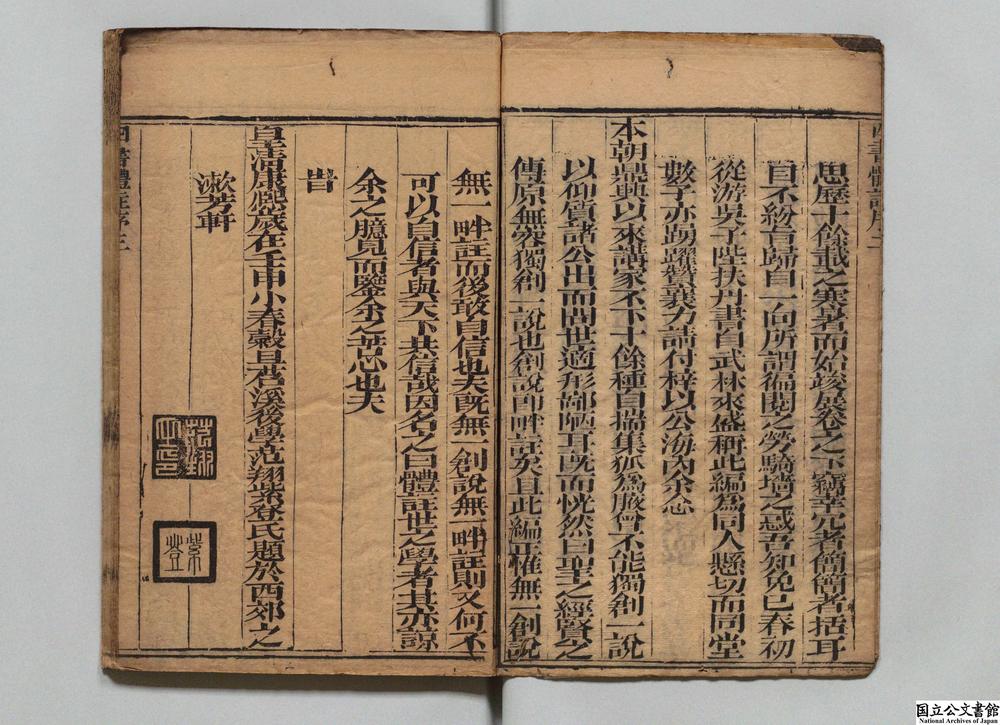 四書體註序二
思歷十餘載之寒暑而始竣展卷之下竊幸冗者簡簡者括耳
目不紛有歸自一向所謂徧閱之勞騎墻之惑吾知免已春初
從游吳子陛扶丹書自武林來盛稱此編為同人懸切而同堂
數子亦踴躍贊襄力請付梓以公海內余念
本朝鼎興以來講家不下十餘種自揣集狐為腋曾不能獨創一說
以仰質諸公出而問世適形鄙陋耳既而恍然曰聖之經賢之
傳原無容獨創一說也創說即畔註矣且此編正惟無一創說
無一畔註而後敢自信也夫既無一創說無一畔註則又何不
可以自信者與天下共信哉因名之曰體註世之學者其亦諒
余之臆見而鑒余之苦心也夫
旹
皇清康熙歲在壬申小春穀旦苕溪後學范翔紫登氏題於西郊之
漱芳軒
范翔之印
紫登
四書體註序三
国立公文書館
National Archives of Japan